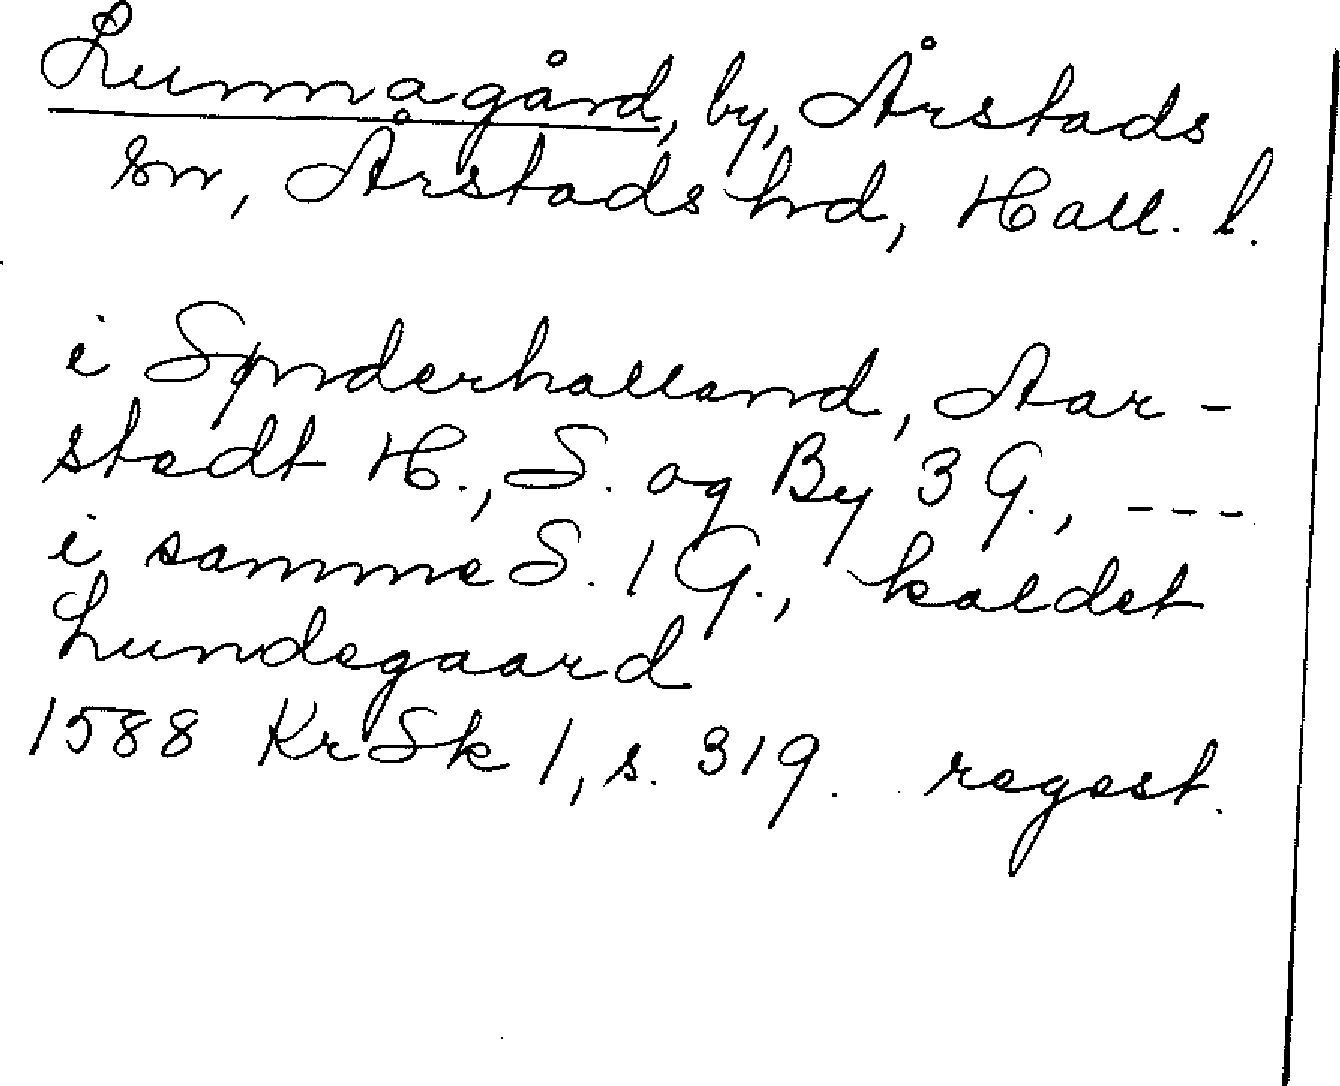 Lunnagård, by, Årstads
sn, Årstads hd, Hall. l.
i Sønderhalland, Aar-
stadt H., S. og By 3 G., ---
i samme S. 1 G., kaldet
Lundegaard
1588 KrSk 1, s. 319. regest.